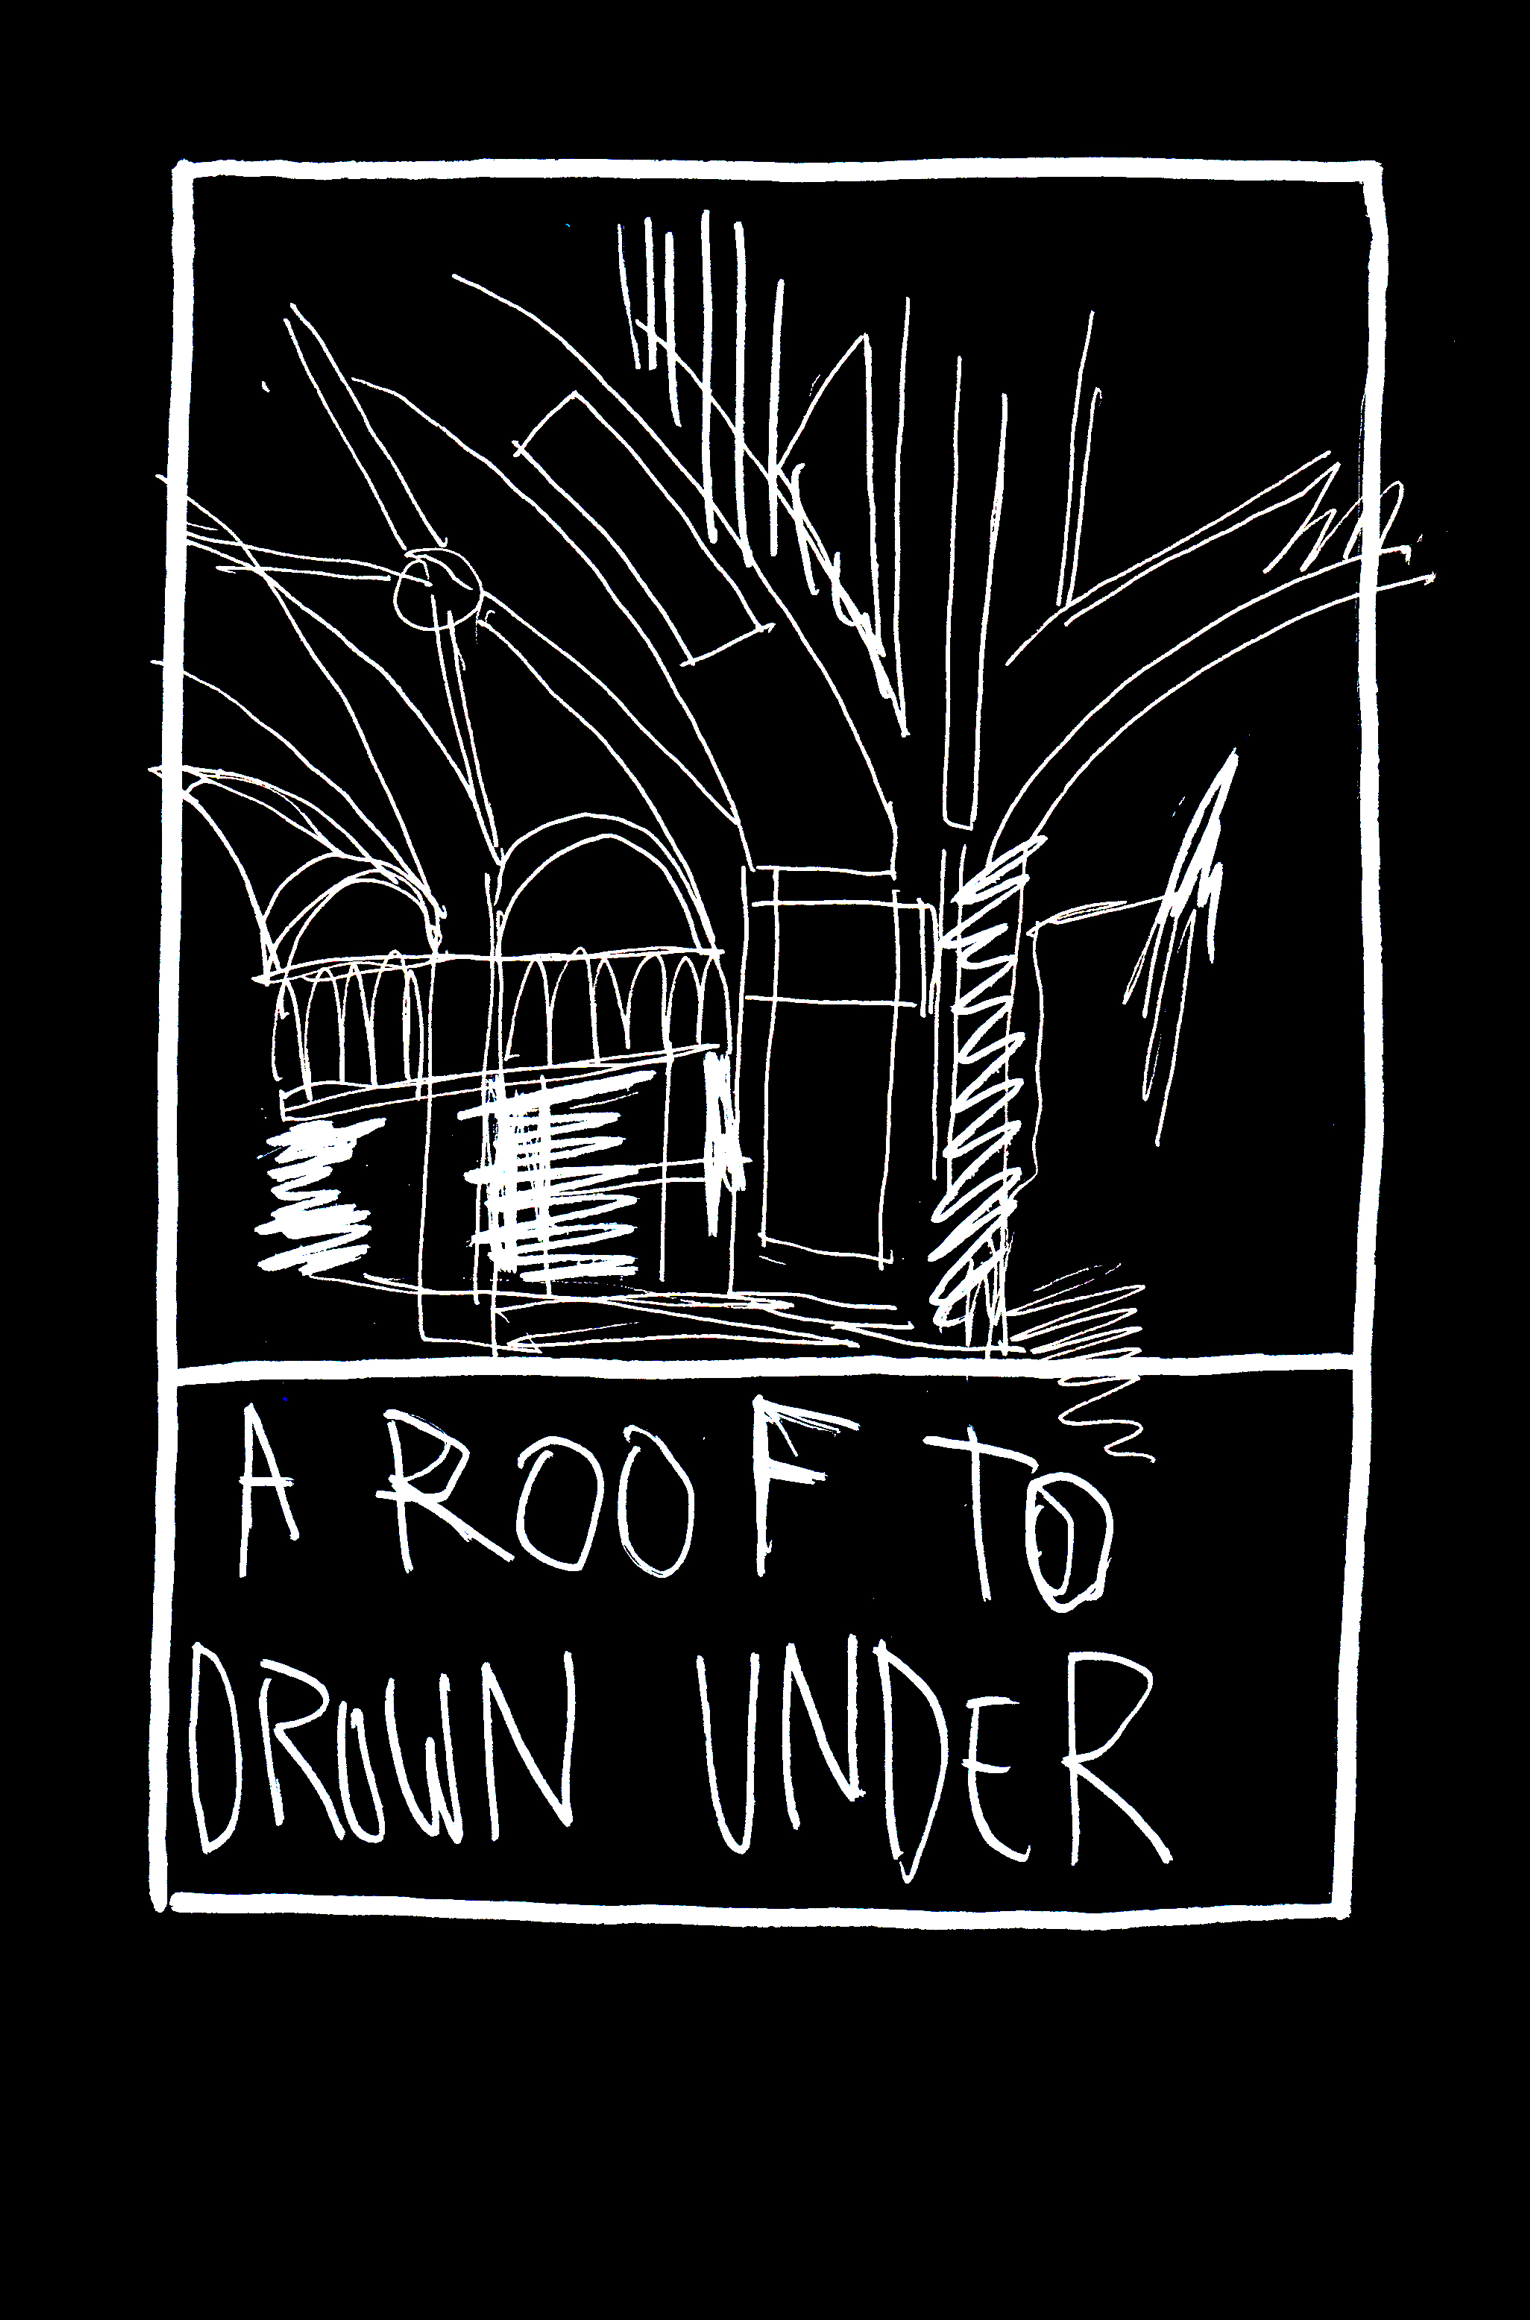 A ROOF TO
DROWN UNDER